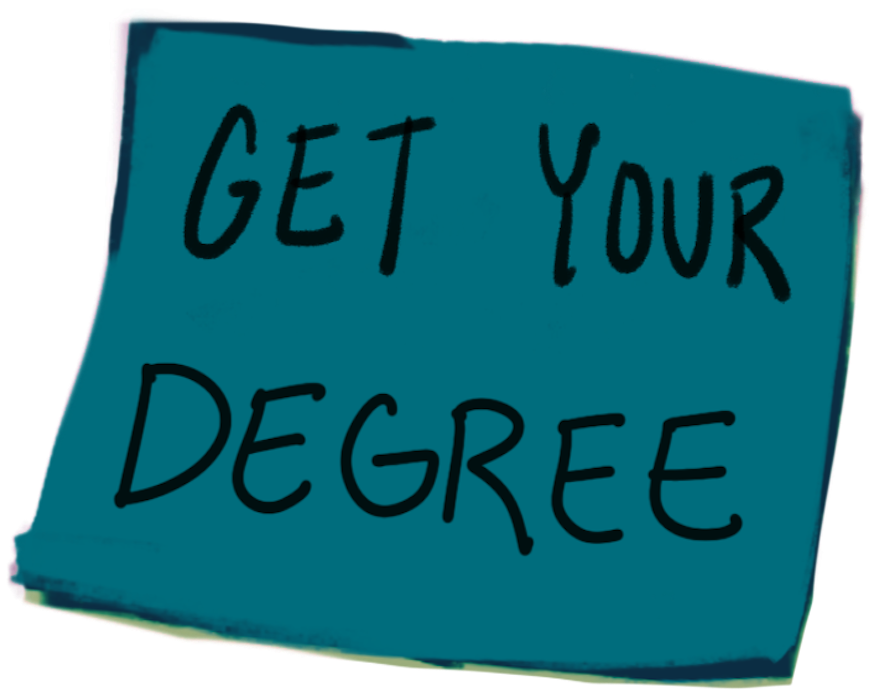 GET YOUR
DEGREE